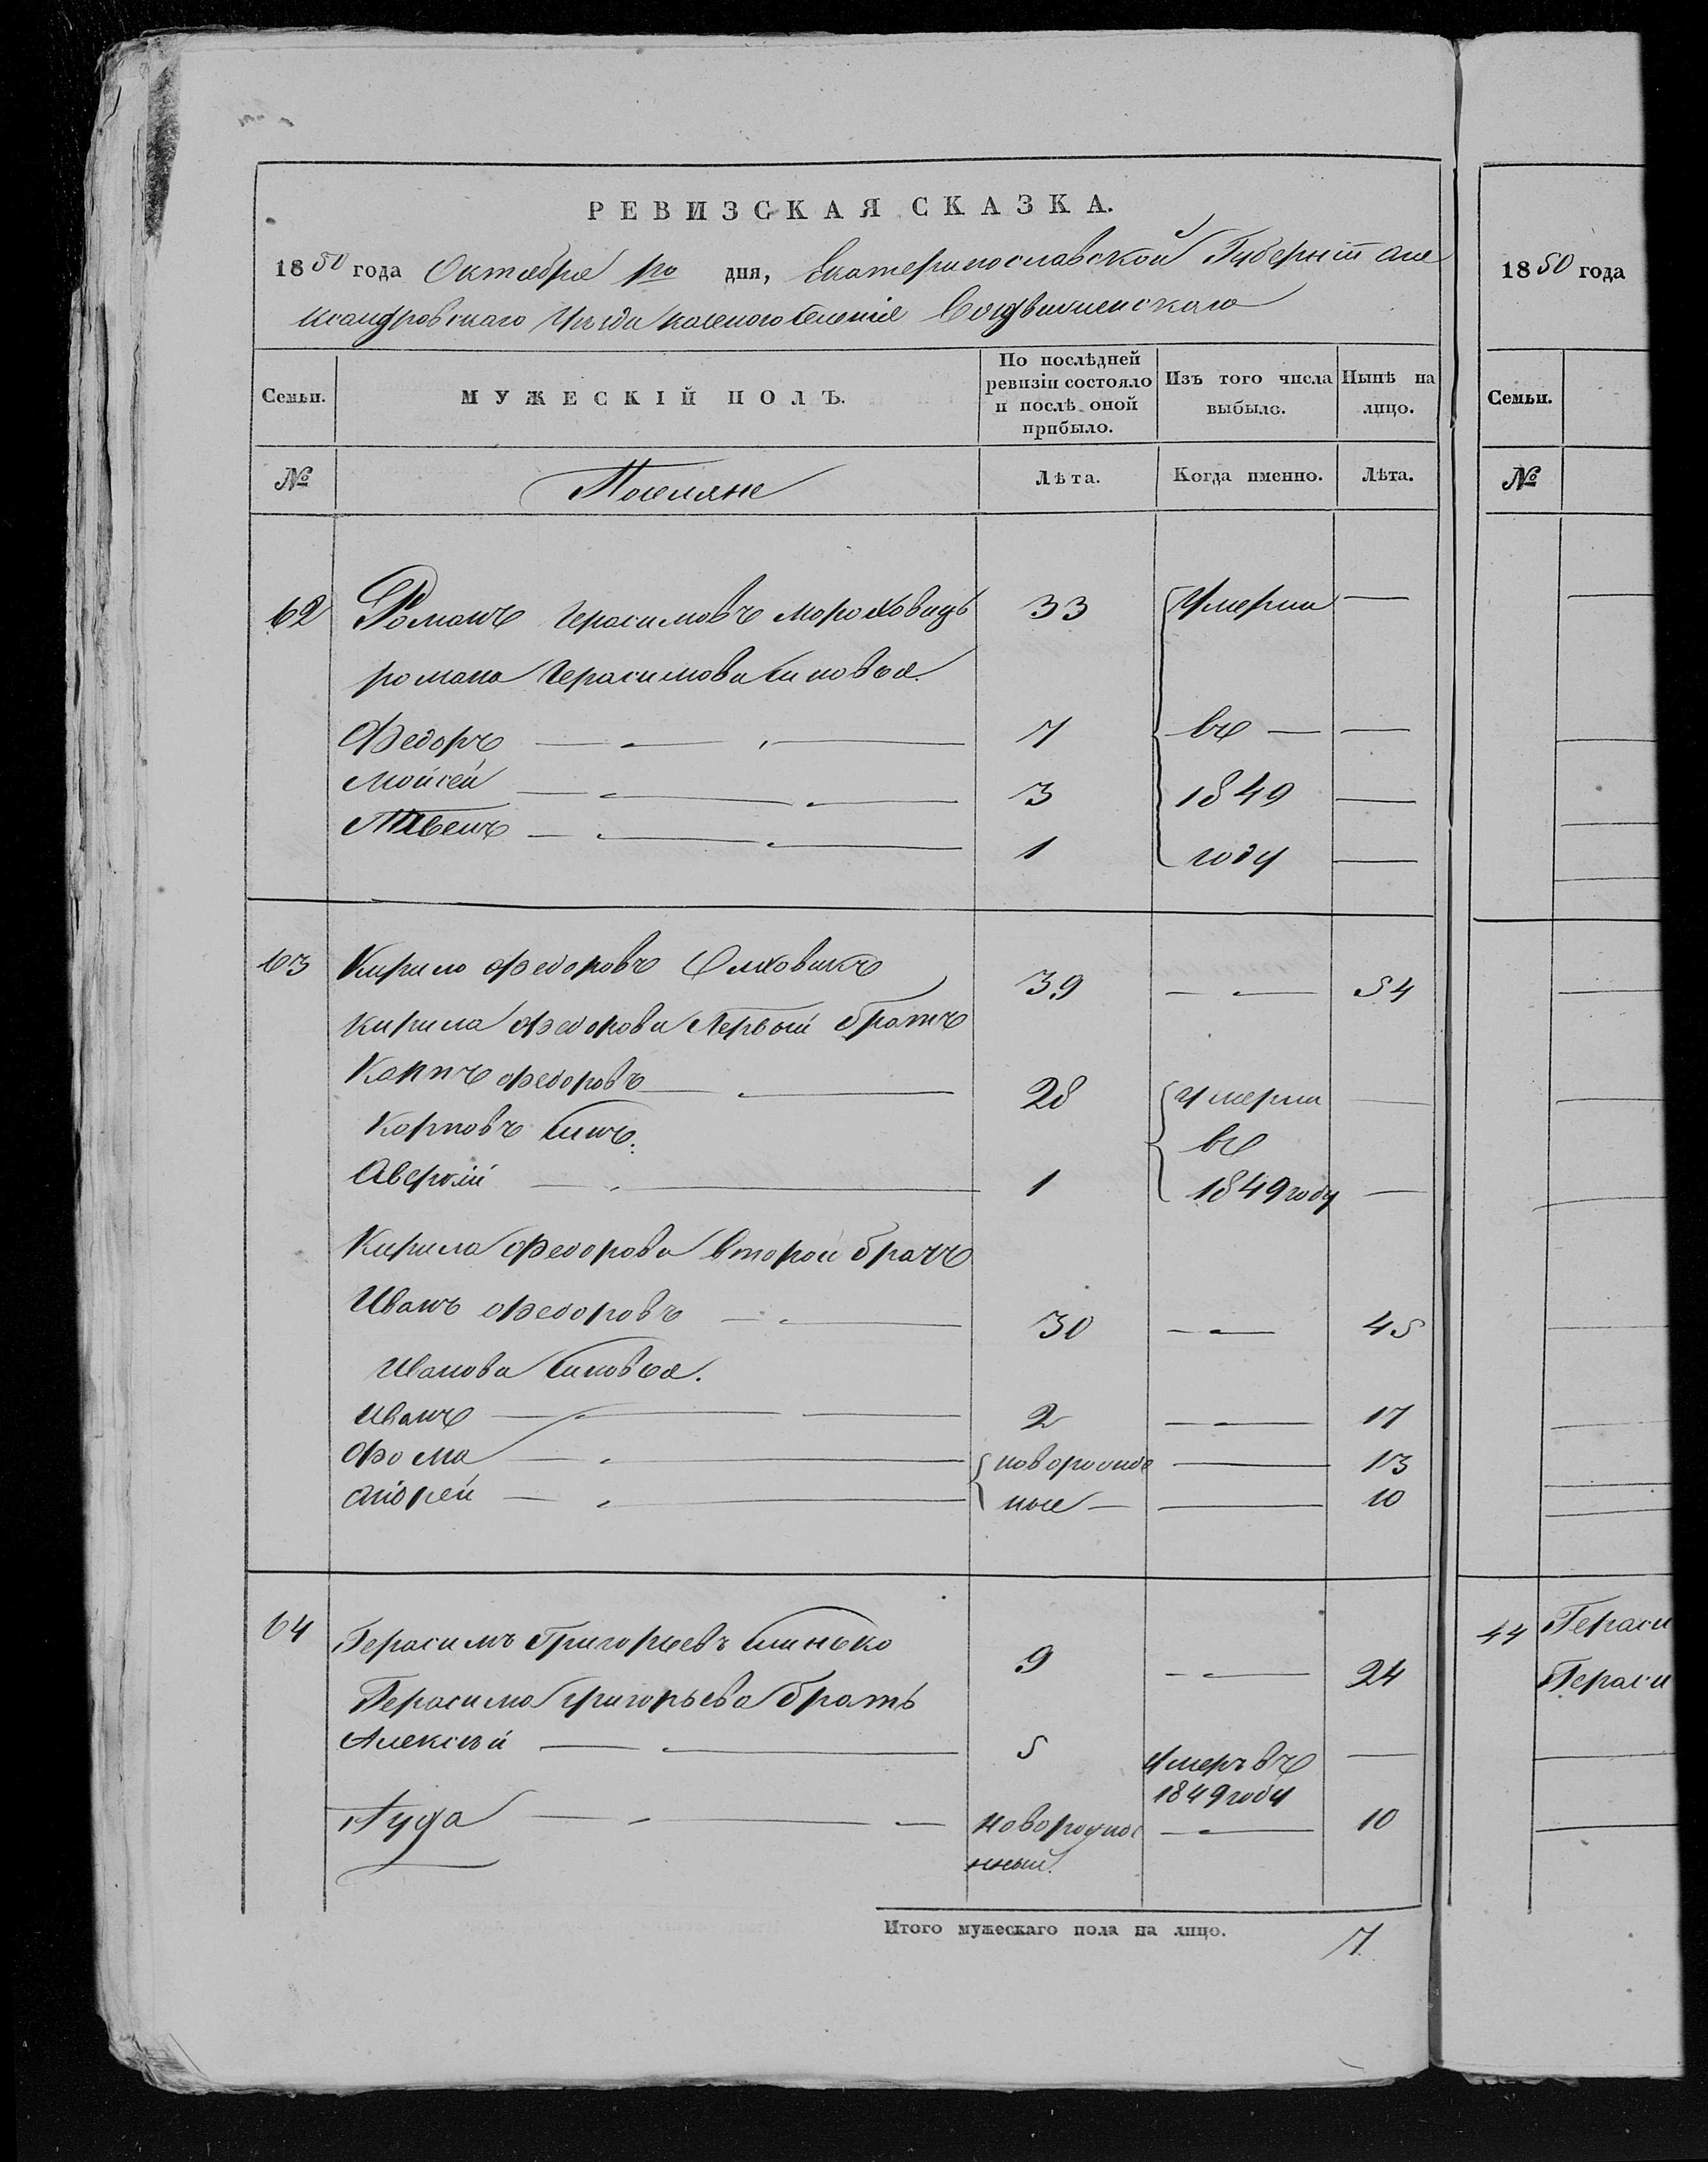 РЕВИЗСКАЯ СКАЗКА.
1850 года Октября 1го дня, Екатеринославской Губерніи Але
ксандровскаго Уезда казеного селенія Воздвиженскаго
Семьи.
МУЖЕСКІЙ ПОЛЪ.
По послѣдней ревизіи состояло и послѣ оной прибыло.
Изъ того числа выбыло.
Нынѣ на лицо.
№
Поселяне
Лѣта.
Когда именно.
Лѣта.
62 Романъ Герасимовъ Мороховецъ 33 Умерли —
романа Герасимова синовья
Федоръ — 7 въ — —
Мойсей — 3 1849 —
— 1 году —
63 Кирило Федоровъ 39 — 54
Кирила Федорова Первый братъ
Карпъ Федоровъ — 28 Умерли —
Карповъ синъ. въ
Аверкій — 1 1849 году —
Кирила Федорова второй братъ
Иванъ Федоровъ — 30 — 45
Иванова синовья.
Иванъ — 2 — 17
Фома — новорожде — 13
Андрей — ные — — 10
64 Герасимъ Григорьевъ Синько 9 — 24
Герасима Григорьева братъ
Алексѣй — 5 Умеръ въ —
1849 году
Луда — новорожде — 10
нный.
Итого мужескаго пола на лицо. 7.
1850 года
Семьи.
№
44 Гераси
Гераси